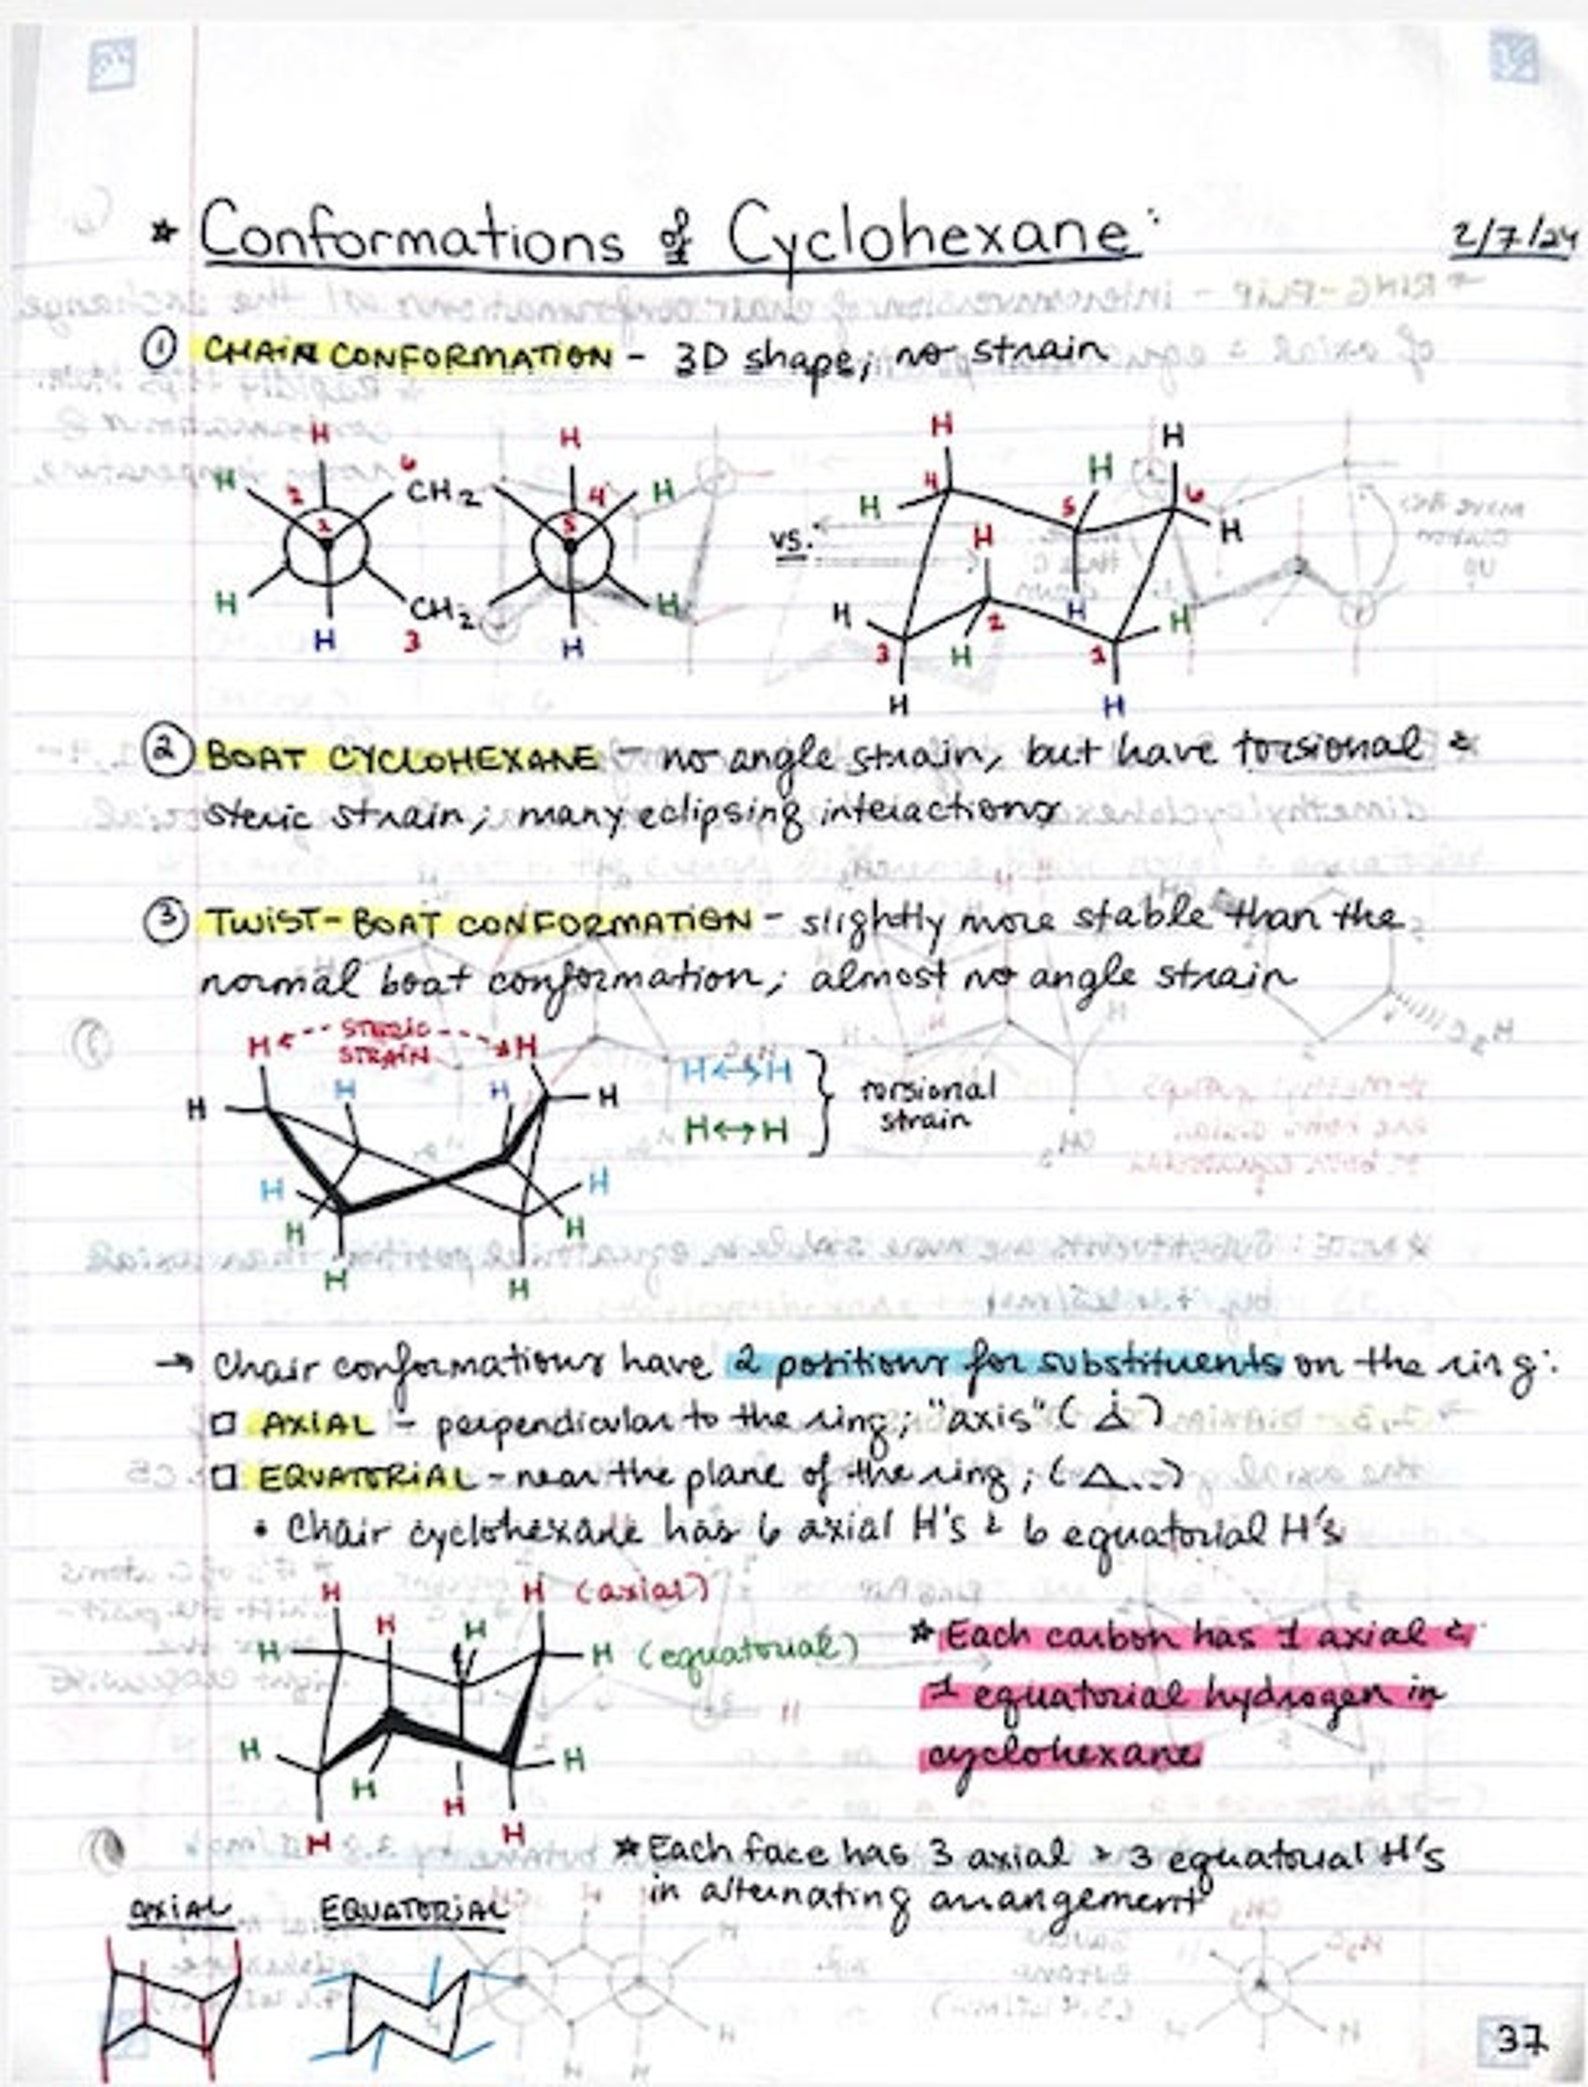 * Conformations of Cyclohexane:
2/7/24
① CHAIR CONFORMATION - 3D shape; no strain
H H H H
2 1 6 CH2 4 5
H H CH2 3 H H
vs.
H H H H
4 5 6 H H
H 3 2 1 H
H H H H
② BOAT CYCLOHEXANE - no angle strain, but have torsional &
steric strain; many eclipsing interactions
③ TWIST-BOAT CONFORMATION - slightly more stable than the
normal boat conformation; almost no angle strain
H STERIC H
STRAIN
H H H H
H↔H
H↔H
torsional
strain
H H
H H
H H
→ Chair conformations have 2 positions for substituents on the ring:
□ AXIAL - perpendicular to the ring; "axis" (
□ EQUATORIAL - near the plane of the ring; (
• Chair cyclohexane has 6 axial H's & 6 equatorial H's
H H (axial)
H H H H (equatorial)
H H H
H H H
* Each carbon has 1 axial &
1 equatorial hydrogen in
cyclohexane
* Each face has 3 axial & 3 equatorial H's
in alternating arrangement
AXIAL EQUATORIAL
37